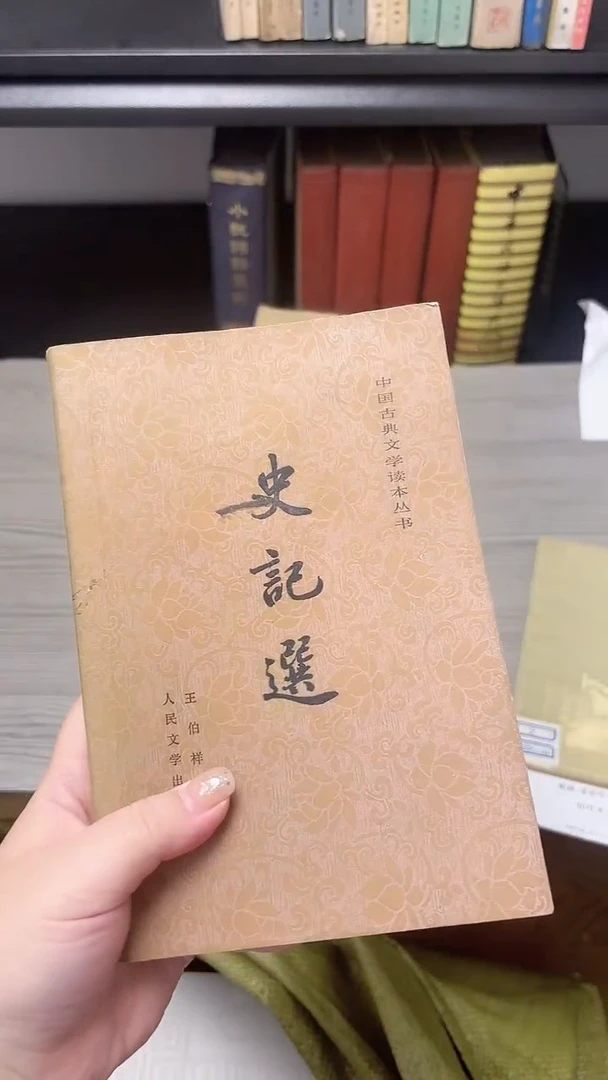 中国古典文学读本丛书
史記選
王伯祥
人民文学出